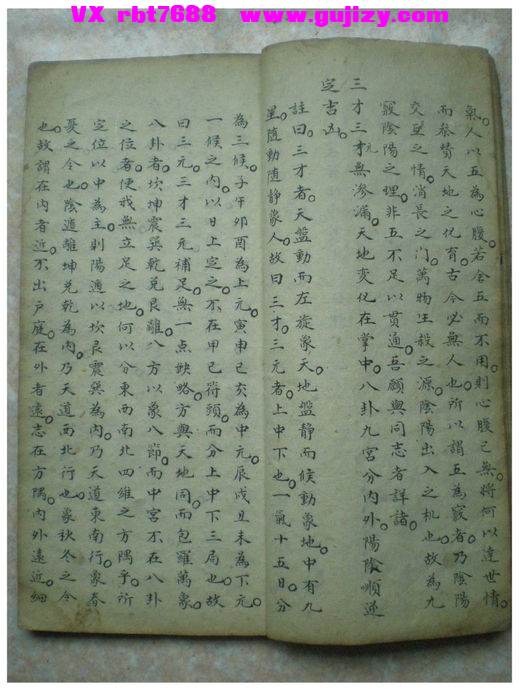 VX rbt7688 www.gujizy.com
氣。人以五為心腹。若舍五而不用。則心腹已無。將何以達世情。
而參贊天地之化育。古今必無人也。所以謂五為寂者。乃陰陽
交互之情。消長之門。萬物生殺之源。陰陽出入之机也。故為九
寂陰陽之理。非五不足以貫通。吾願與同志者詳諸。
三才三元無滲漏。天地变化在掌中。八卦九宮分內外。陽陰順逆
定吉凶。
註曰。三才者。天盤動而左旋象天。地盤静而候動象地。中有九
星。隨動隨静象人。故曰三才。三元者。上中下也。一氣十五日。分
為三候。子午卯酉為上元。寅申巳亥為中元。辰戌丑未為下元。
一候之內。以日上定之。不在甲己符頭。而分上中下三局也。故
曰三元。三才三元補足。無一点缺略。方與天地同。而包羅萬象。
八卦者。坎坤震巽乾兌艮離。八方以象八節。而中宮不在八卦
之位者。使我無立足之地。何以分東西南北四維之方隅乎。所
定位以中為主。則陽遁以坎艮震巽為內。乃天道東南行。象春
夏之令也。陰遁離坤兌乾為內。乃天道西北行也。象秋冬之令
也。故謂在內者近。不出戶庭。在外者遠。志在方隅。內外遠近。細